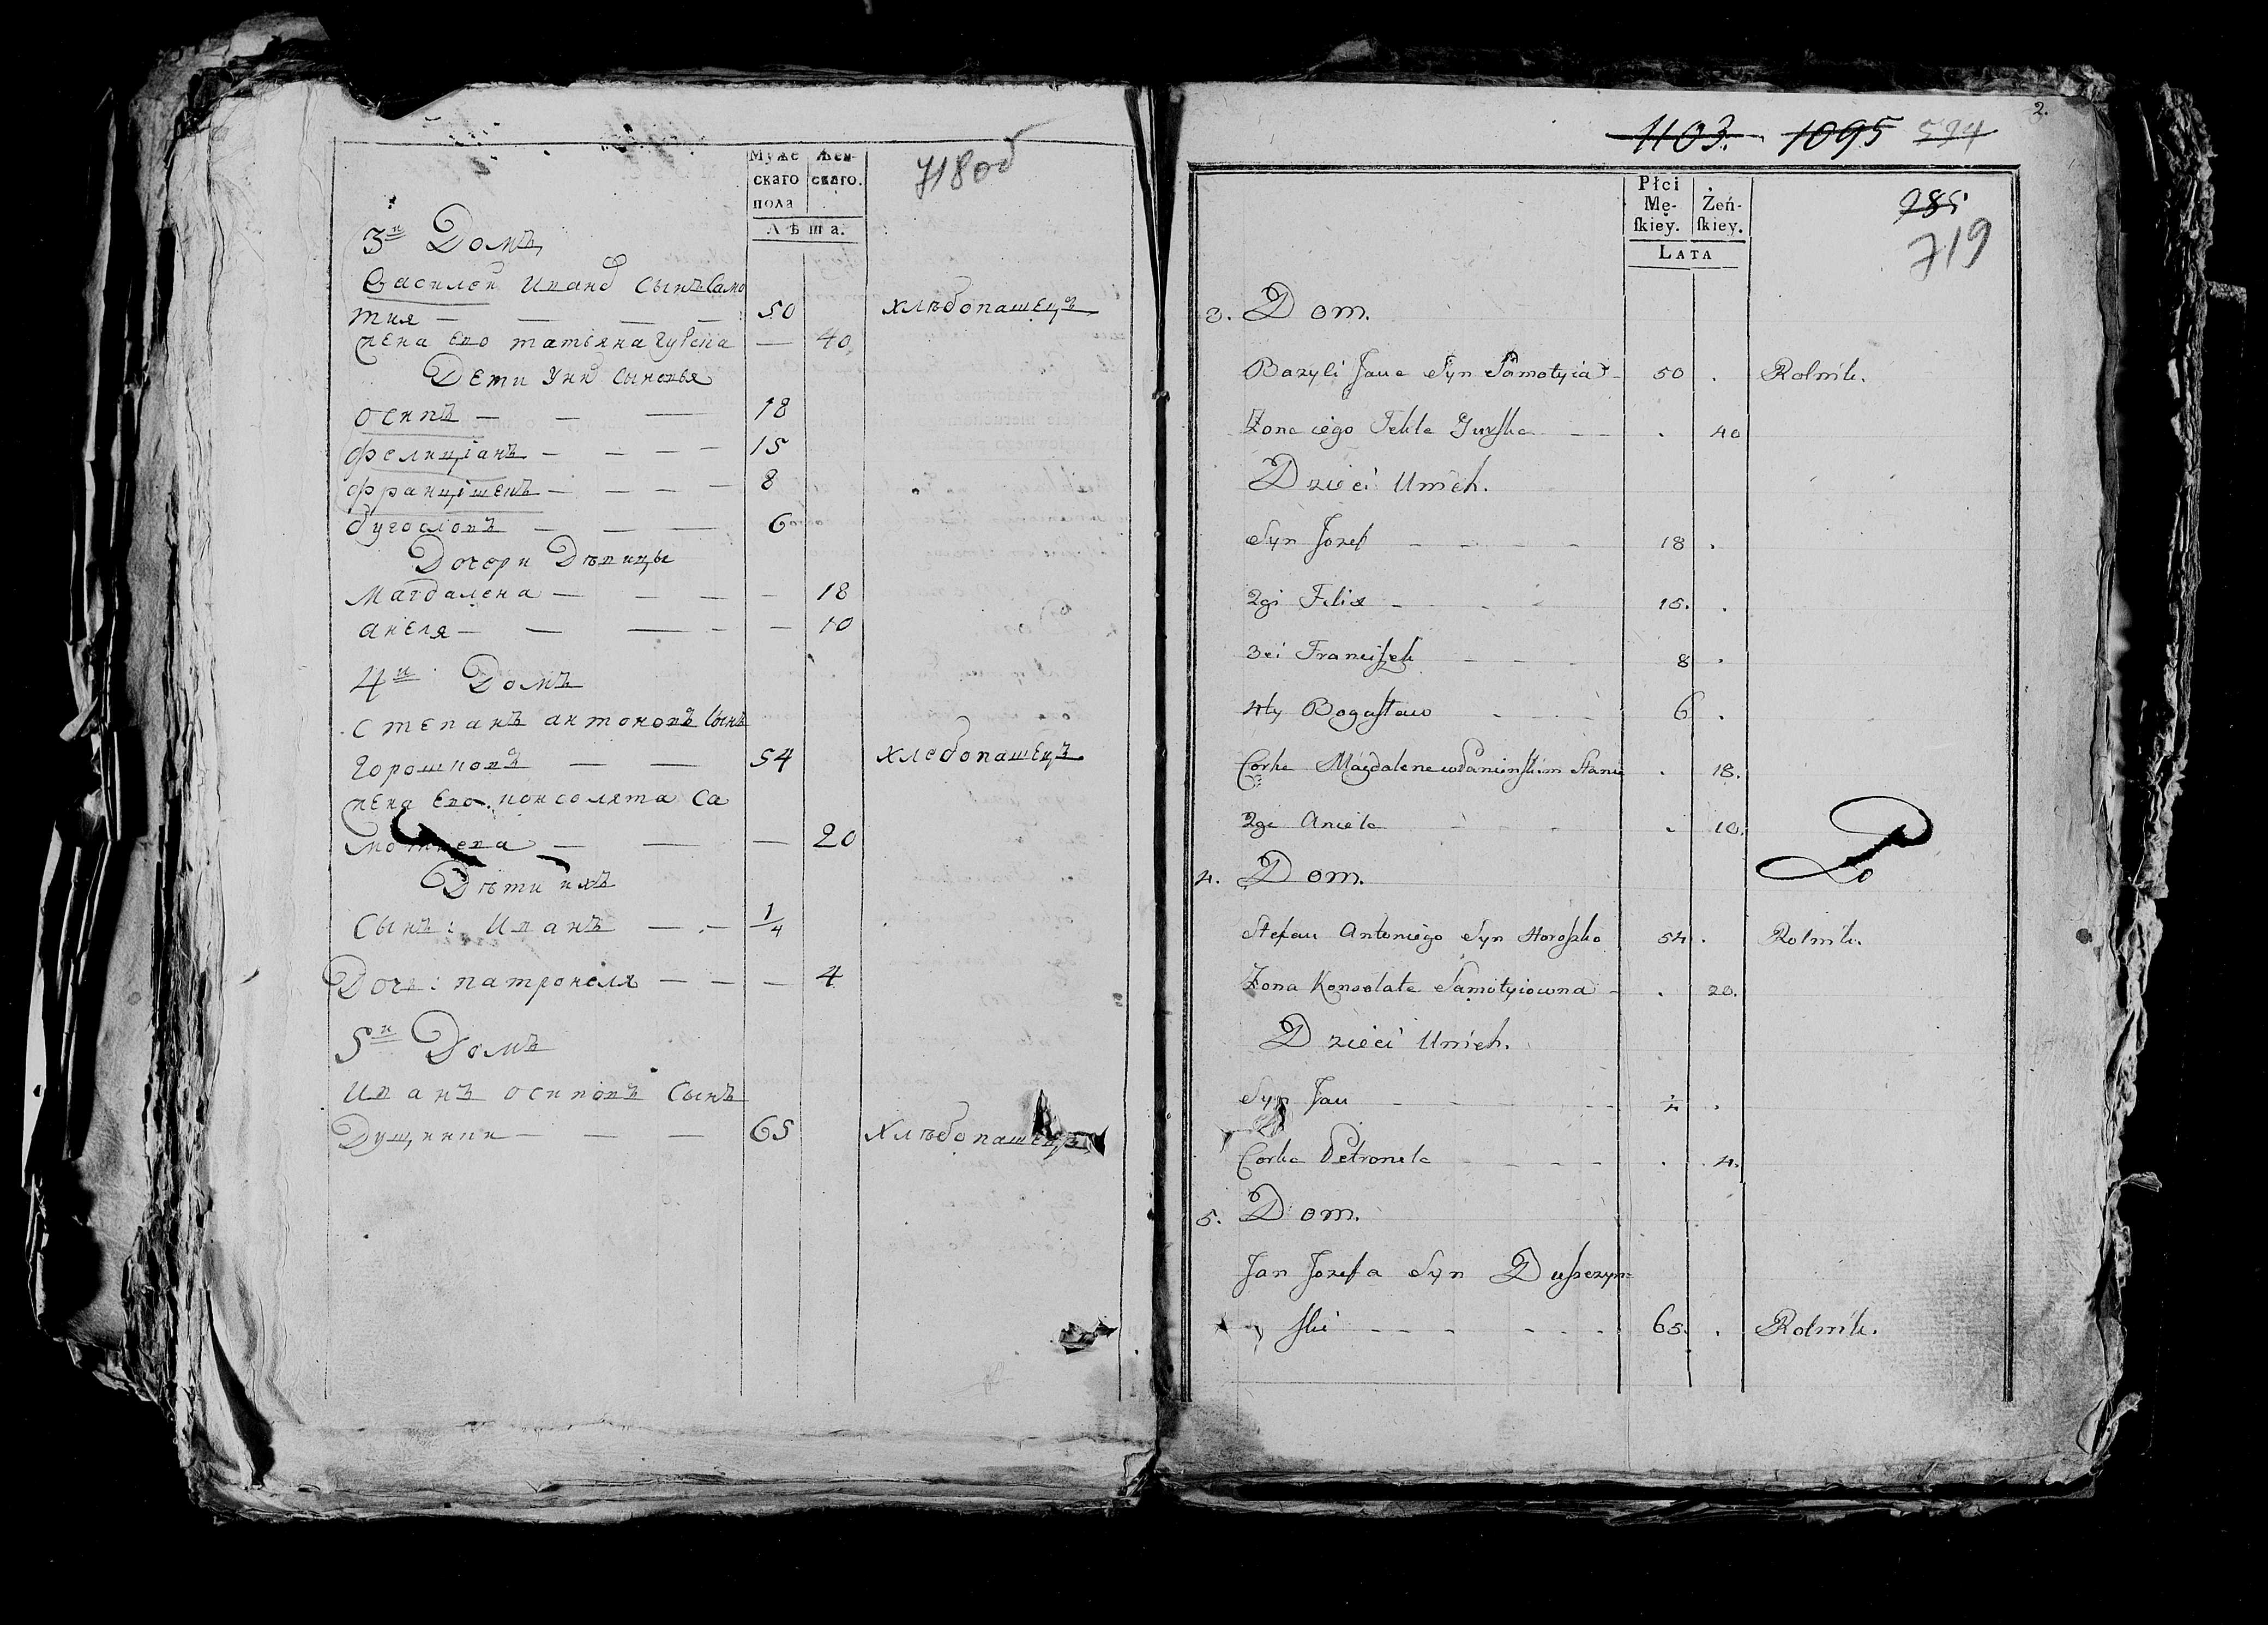 718об
Муже Жен-
скаго скаго.
пола
Лѣта.
3й Домъ
Василей Ивановъ сынъ Само
тыя — — — — 50 хлѣбопашецъ
жена его татьяна — 40
Дети Униъ сыновья
осипъ — — — 18
фелиціанъ — — — — 15
францішекъ — — — — 8
богословъ — — — 6
Дочери Дѣвицы
Магдалена — — — — — 18
анеля — — — — — 10
4й Домъ
степанъ антоновъ сынъ
Горошковъ — — 54 хлебопашецъ
жена его консолята Са
мотыева — — — 20
Дѣти ихъ
Сынъ: Иванъ — . — 1/4
Дочь: патронеля — — — 4
5й Домъ
Иванъ осиповъ сынъ
Дущинки — — — 65 Хлѣбопашецъ
2.
1103. 1095 594
285
719
Płci
Mę- Żeń-
ſkiey. ſkiey.
LATA
3. Dom.
Bazyli Jana Syn Samotyia 50 . Rolnik.
Żona iego Tekla Gurska — — . 40
Dzieci Unich.
Syn Jozef — — — — 18 .
2gi Felix — — — 15. .
3ci Franciszek — — — 8 .
4ty Bogusław — — — 6 .
Corka Magdalena w Panienskim Stanie . 18.
2ga Aniela — — — . 10.
4. Dom.
Stefan Antoniego Syn Horoszko 54 . Rolnik.
Żona Konsolata Samotyiowna — . 20.
Dzieci Unich.
Syn Jan — — — — 1/4 .
Corka Petronela — — — — . 4.
5. Dom.
Jan Jozefa Syn Duszczyn=
ski — — — — — — 65. . Rolnik.